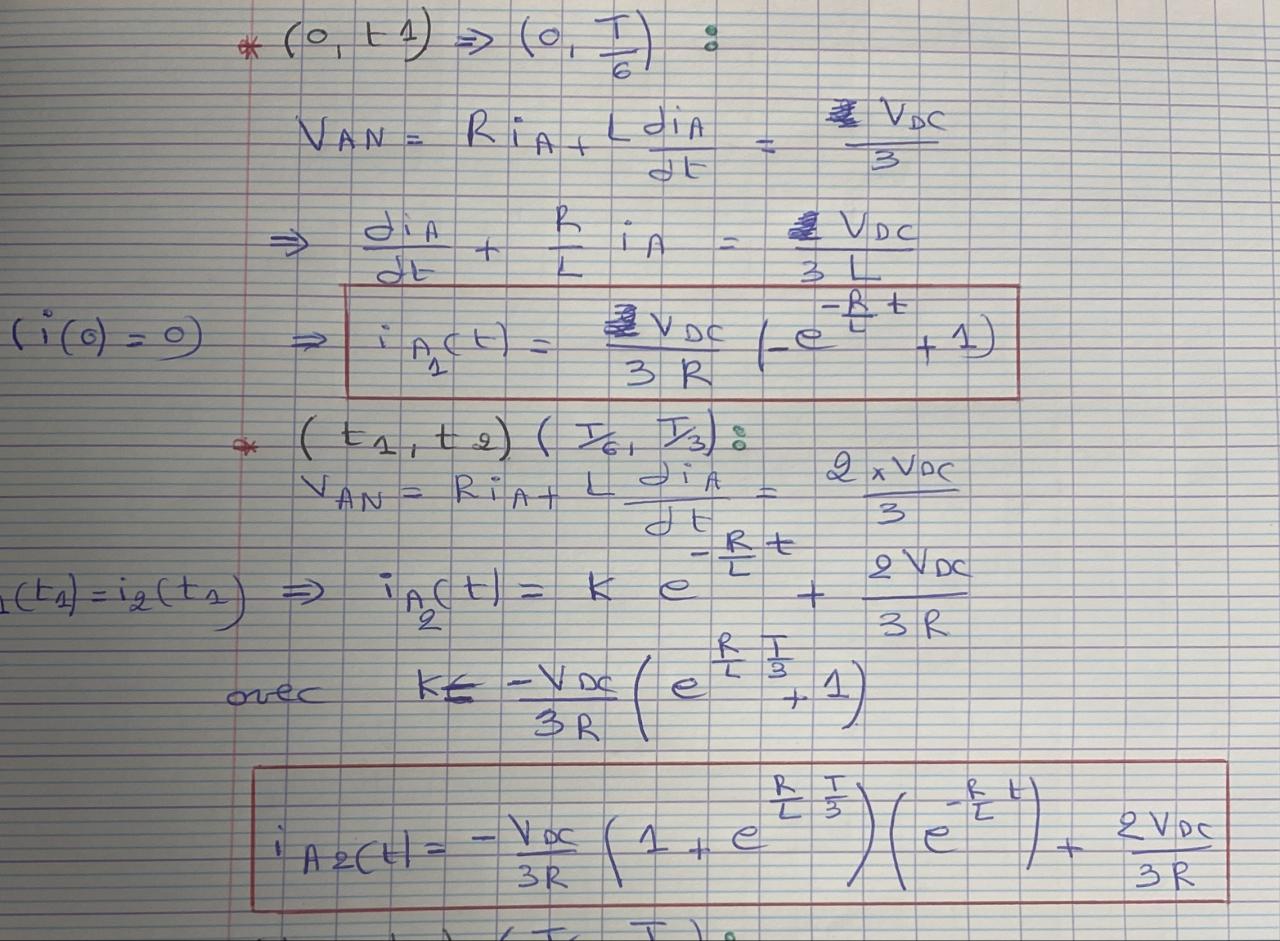 * (0, t1) ⇒ (0, T/6) :
V_AN = R i_A + L di_A/dt = V_DC/3
⇒ di_A/dt + R/L i_A = V_DC/3L
(i(0) = 0) ⇒ i_A1(t) = V_DC/3R (-e^(-R/L t) + 1)
* (t1, t2) (T/6, T/3) :
V_AN = R i_A + L di_A/dt = 2 x V_DC/3
1(t1) = i2(t1) ⇒ i_A2(t) = K e^(-R/L t) + 2 V_DC/3R
avec K = -V_DC/3R (e^(R/L T/3) + 1)
i_A2(t) = -V_DC/3R (1 + e^(R/L T/3)) (e^(-R/L t)) + 2 V_DC/3R